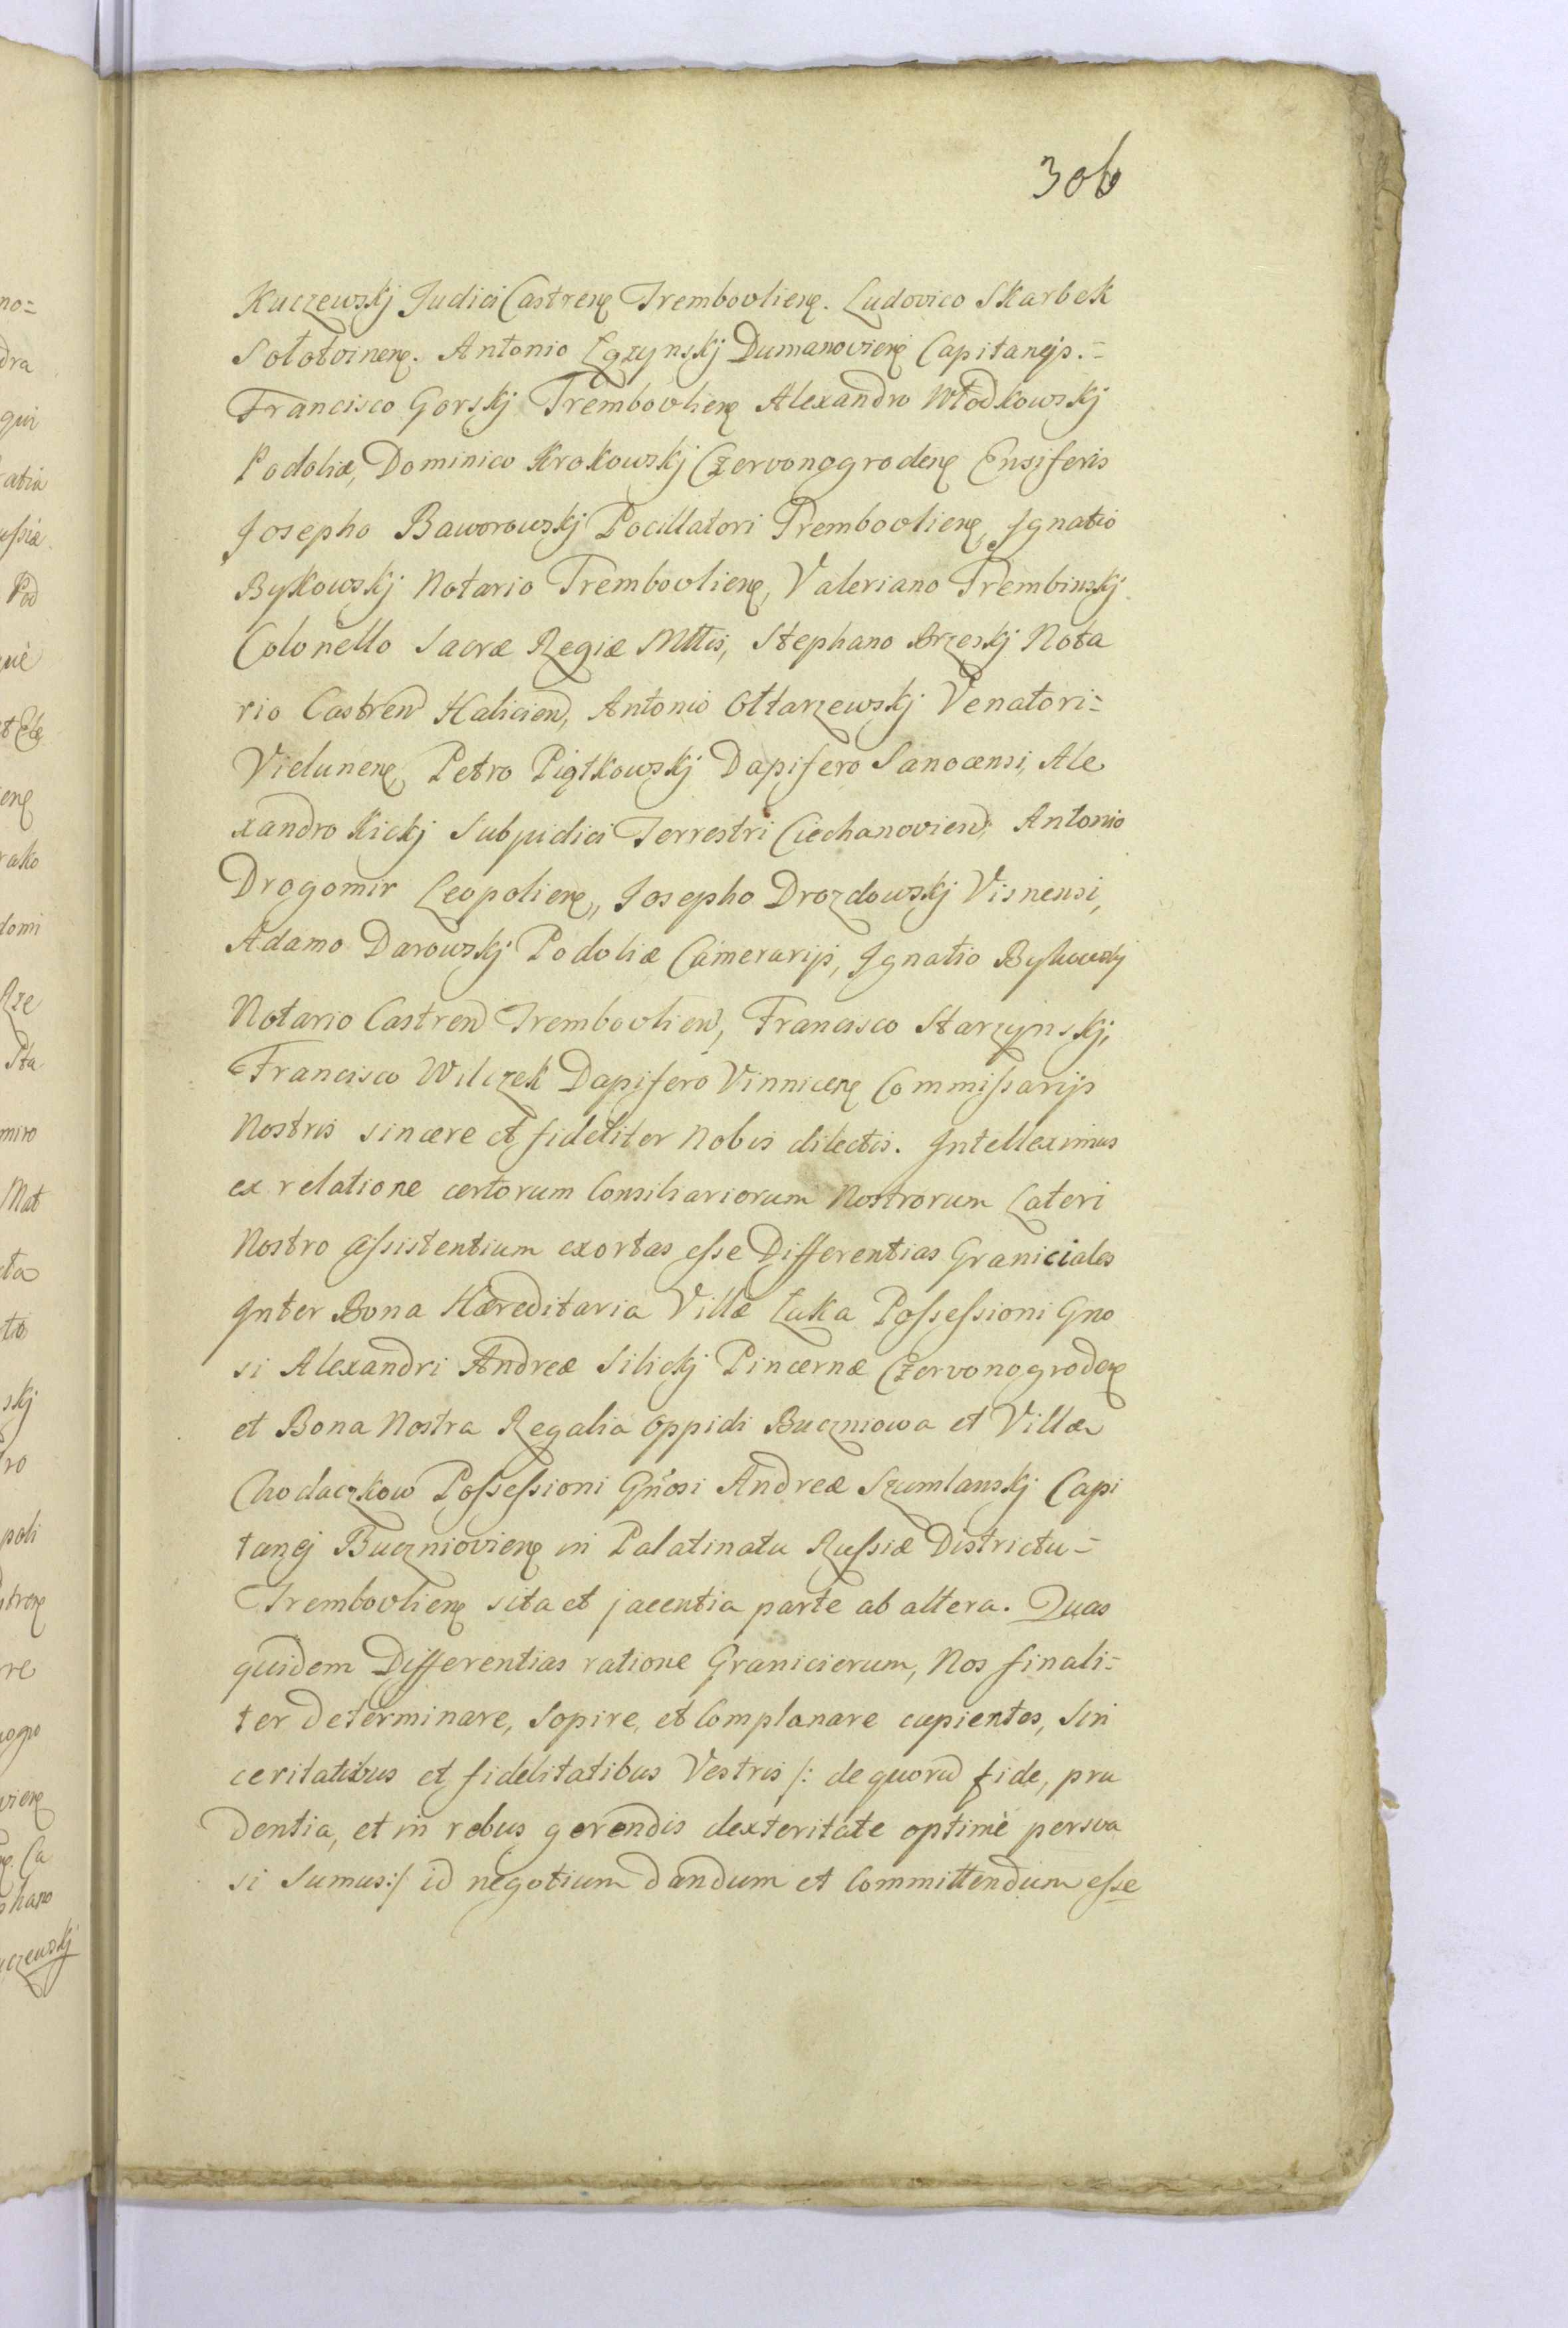 306
Kuczewskj Judici Castrenę Trembovlienę. Ludovico Skarbek
Sołotvinenę. Antonio Łączynskj Dumanovienę Capitaneis.=
Francisco Gorskj Trembovlienę Alexandro Włodkowskj
Podoliæ, Dominico Krokowskj Czervonogrodenę Ensiferis
Josepho Baworowskj Pocillatori Trembovlienę, Ignatio
Bykowskj Notario Trembovlienę, Valeriano Trembinskj
Colonello Sacræ Regiæ Mttis, Stephano Brzeskj Nota
rio Castren Halicien, Antonio Ottarzewskj Venatori=
Vielunenę, Petro Piątkowskj Dapifero Sanocensi, Ale
xandro Kickj Subjudici Terrestri Ciechanovien, Antonio
Drogomir Leopolienę, Josepho Drozdowskj Visnensi,
Adamo Darowskj Podoliæ Camerarijs, Ignatio Bykowskj
Notario Castren Trembovlien, Francisco Starzynskj,
Francisco Wilczek Dapifero Vinnicenę Commissarijs
Nostris sincere et fideliter Nobis dilectis. Intelleximus
ex relatione certorum Consiliariorum Nostrorum Lateri
Nostro assistentium exortas esse Differentias Graniciales
Inter Bona Hæreditaria Villæ Łuka Possessioni Gno
si Alexandri Andreæ Silickj Pincernæ Czervonogrodenę
et Bona Nostra Regalia Oppidi Buczniowa et Villæ
Chodaczkow Possessioni Gñosi Andreæ Szumlanskj Capi
tanej Buczniovienę in Palatinatu Russiæ Districtu=
Trembovlienę sita et jacentia parte ab altera. Quas
quidem Differentias ratione Granicierum, Nos finali=
ter determinare, Sopire, et Complanare cupientes, Sin
ceritatibus et fidelitatibus Vestris /: de quorũ fide, pru
dentia, et in rebus gerendis dexteritate optimè persva
si Sumus:/ id negotium dandum et Committendum esse